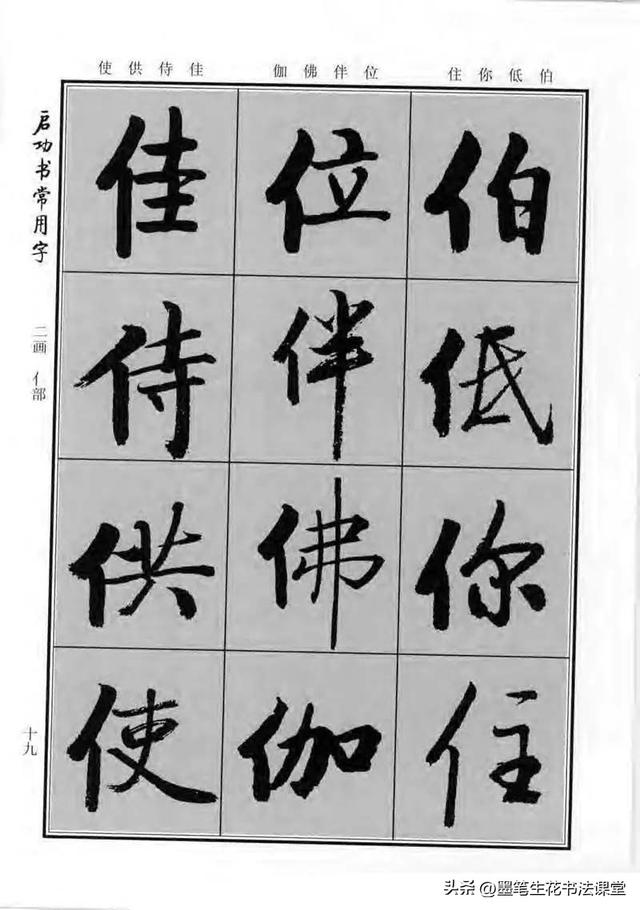 使供侍佳
伽佛伴位
住你低伯
启功书常用字
二画 亻部
十九
伯低你住
位伴佛伽
佳侍供使
头条 @墨笔生花书法课堂